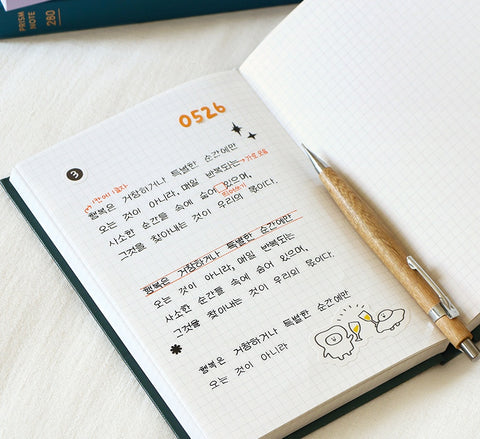 PRISM NOTE 280
0526
3
한 칸에 1글자
행복은 거창하거나 특별한 순간에만
오는 것이 아니라, 매일 반복되는 →가로 모음
사소한 순간들 속에 숨어 있으며,
띄어쓰기
그것을 찾아내는 것이 우리의 몫이다.
행복은 거창하거나 특별한 순간에만
오는 것이 아니라, 매일 반복되는
사소한 순간들 속에 숨어 있으며,
그것을 찾아내는 것이 우리의 몫이다.
행복은 거창하거나 특별한 순간에만
오는 것이 아니라